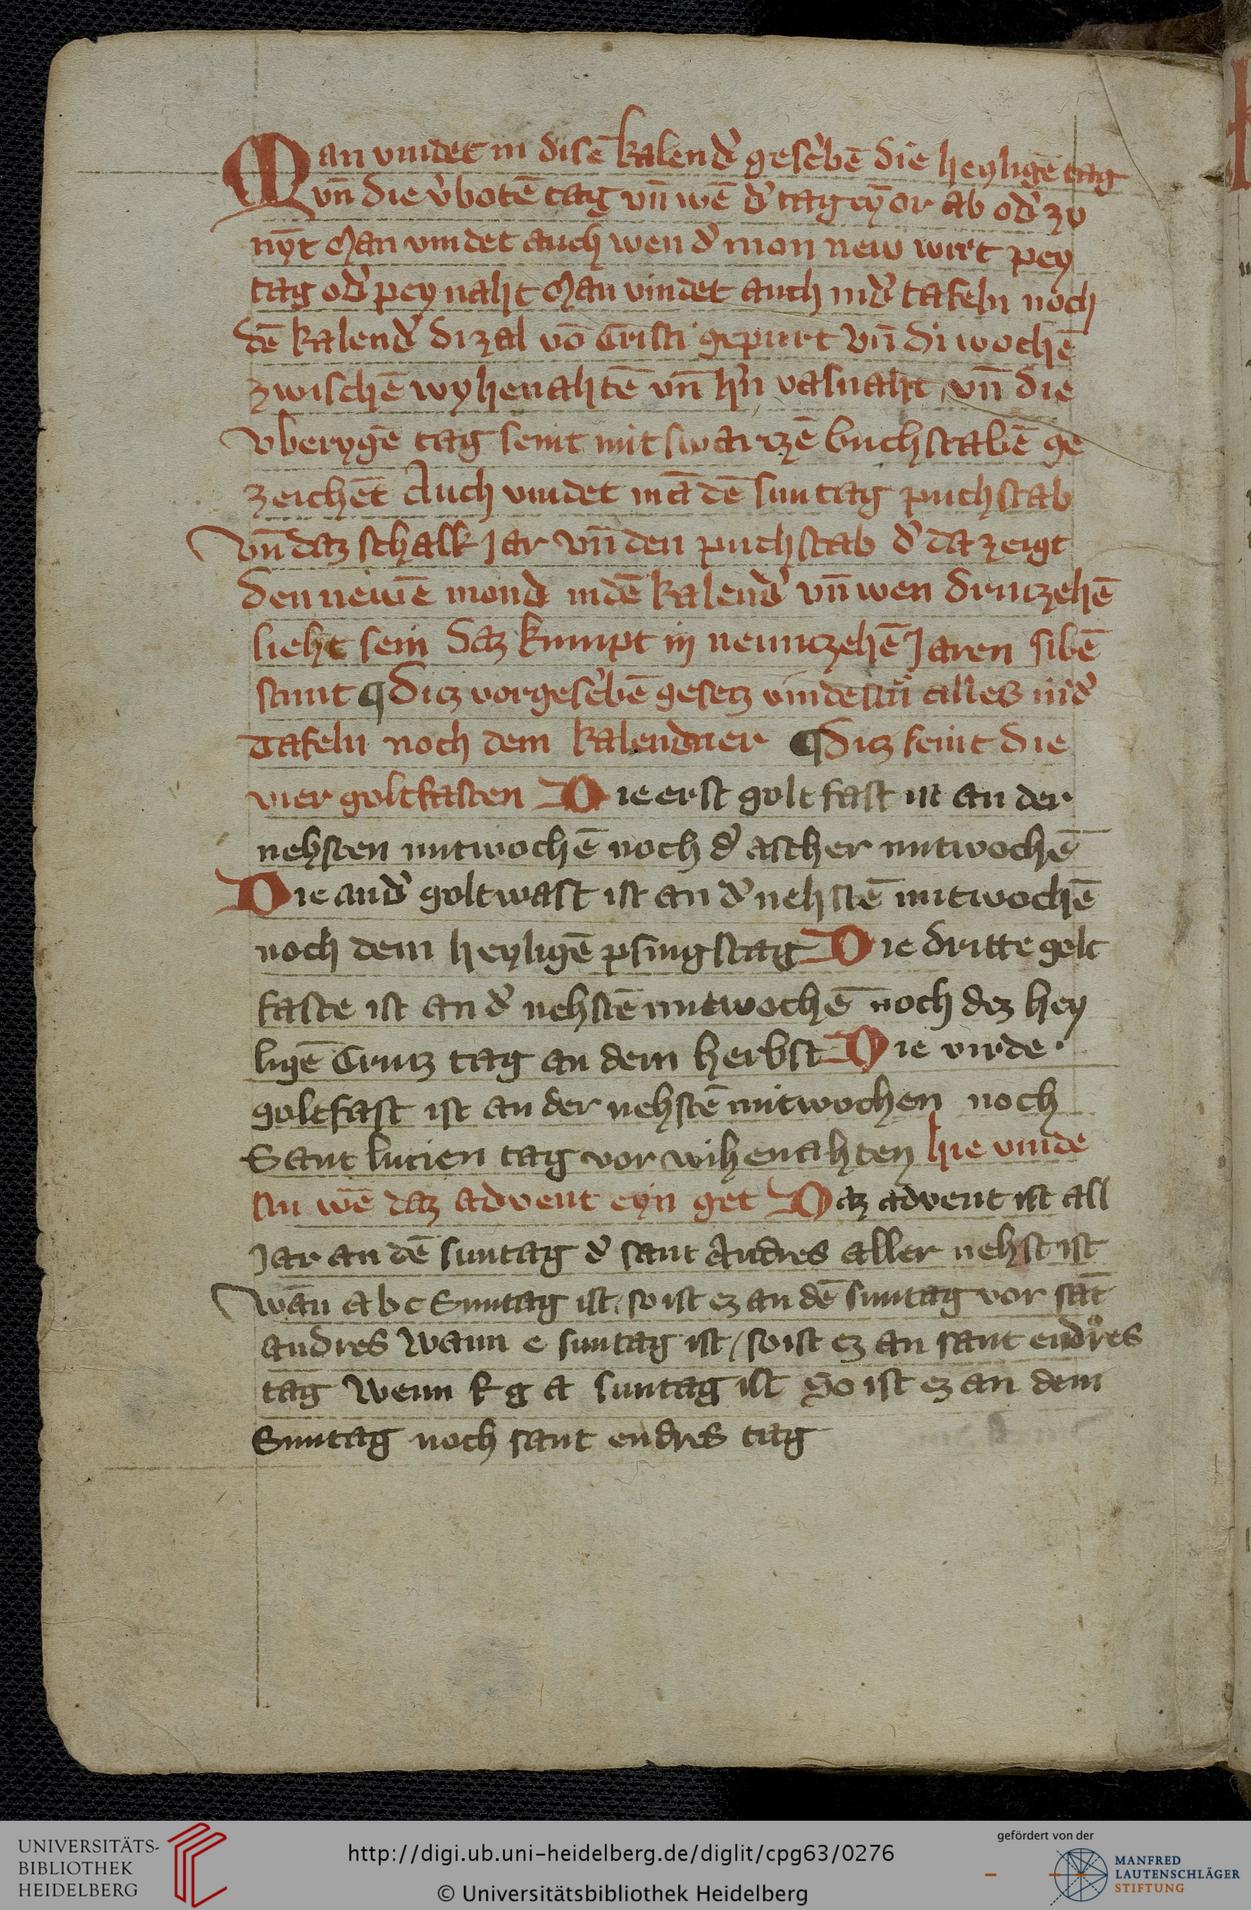 Man vindet in disē kalend̉ gescḃē die heyligē tag
vn̄ die v̉botē tag vn̄ wē d̉ tag eȳ or ab od̉ zv
nȳt Man vindet auch wen d̉ mon new wirt pey
tag od̉ pey naht Man vindet auch in d̉ tafeln noch
dē kalend̉ di zal vō Cristi gepurt vn̄ di wochē
zwischē wyhenahtē vn̄ h̉n vasnaht vn̄ die
vberygē tag seint mit swarczē buchstabē ge
zeichēt Auch vindet mā dē suntag puchstab
vn̄ daz schalk Jar vn̄ den puchstab d̉ da zeigt
den newē mond in dē kalend̉ vn̄ wen drutzehē
lieht sein Daz kumpt in neuntzehē Jaren sibē
stunt ¶ Ditz vorgescḃē gesetz vindestu alles in d̉
Tafeln noch dem kalendner ¶ Ditz seint die
vier goltfasten Die erst golt fast ist an der
nehsten mitwochē noch d̉ ascher mitwochē
Die and̉ goltwast ist an d̉ nehstē mitwochē
noch dem heyligē pfingstag Die dritte golt
faste ist an d̉ nehstē mitwochē noch dez hey
ligē Crutz tag an dem herbst Die virde
goltfast ist an der nehstē mitwochen noch
Sant lucien tag vor wihenahten hie vinde
An wē daz advent eyn get Daz advent ist all
Jar an dē suntag d̉ sant Andres aller nehst ist
Wān a b c Suntag ist so ist ez an dē suntag vor sāt
andres Wann e suntag ist / so ist ez an sant endres
tag Wenn f g a suntag ist So ist ez an dem
Suntag noch sant endres tag
UNIVERSITÄTS-
BIBLIOTHEK
HEIDELBERG
http://digi.ub.uni-heidelberg.de/diglit/cpg63/0276
© Universitätsbibliothek Heidelberg
gefördert von der
MANFRED
LAUTENSCHLÄGER
STIFTUNG